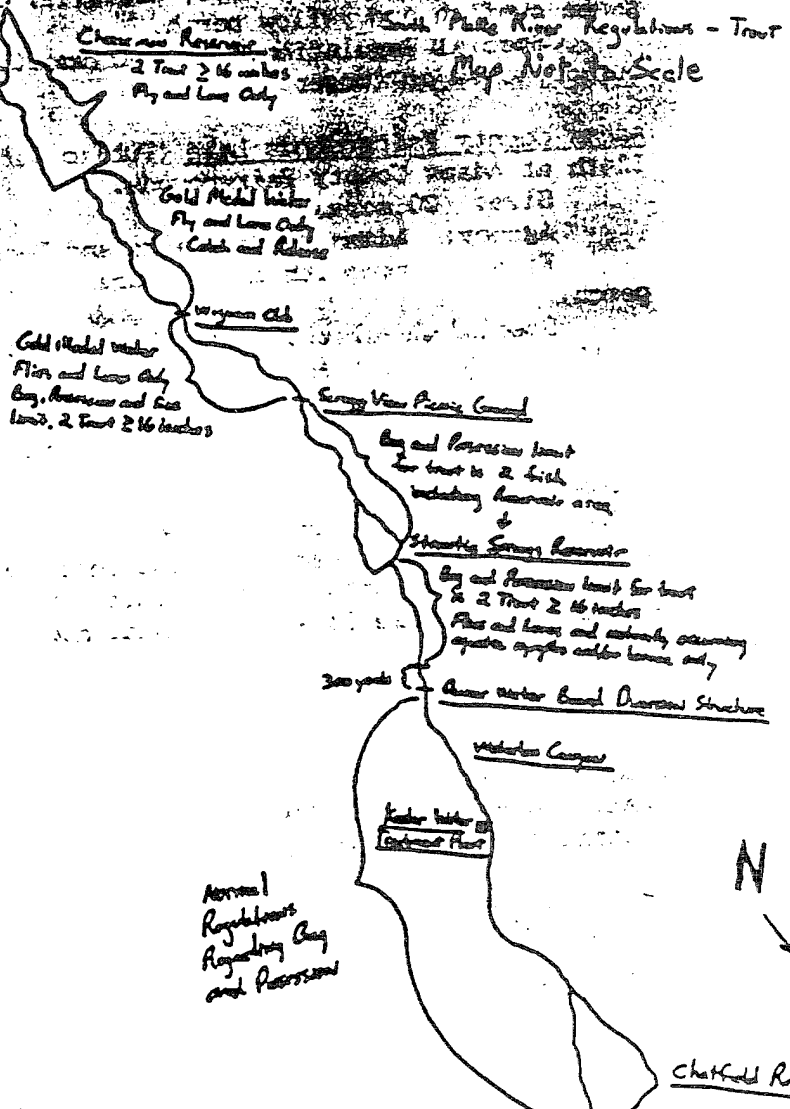 South Platte River Regulations - Trout
Map Not to Scale
Cheesman Reservoir
2 Trout ≥ 16 inches
Fly and Lure Only
Gold Medal Water
Fly and Lure Only
Catch and Release
Wigwam Club
Gold Medal Water
Flies and Lures Only
Bag, Possession and Size
limit, 2 Trout ≥ 16 inches
Scraggy View Picnic Ground
Bag and Possession limit
for trout is 2 fish
including Reservoir area
Strontia Springs Reservoir
Bag and Possession limit for trout
is 2 Trout ≥ 16 inches
Flies and Lures and naturally occurring
aquatic nymphs and/or larvae only
300 yards
Water Board Diversion Structure
Waterton Canyon
Water
Treatment Plant
Normal
Regulations
Regarding Bag
and Possession
N
Chatfield R